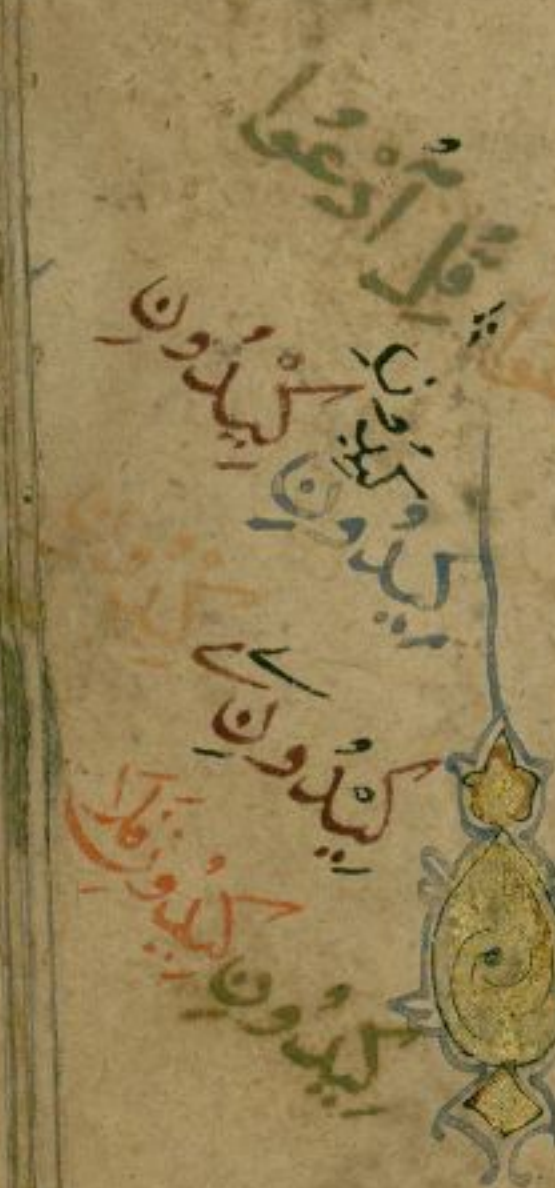 قُلِ آدْعُوا
كِيدُونِ
كِيْدُونِ
كِيدُونِ
كِيدُونِ
كِيْدُونِ
كِيدُونِ
كِيدُونِ